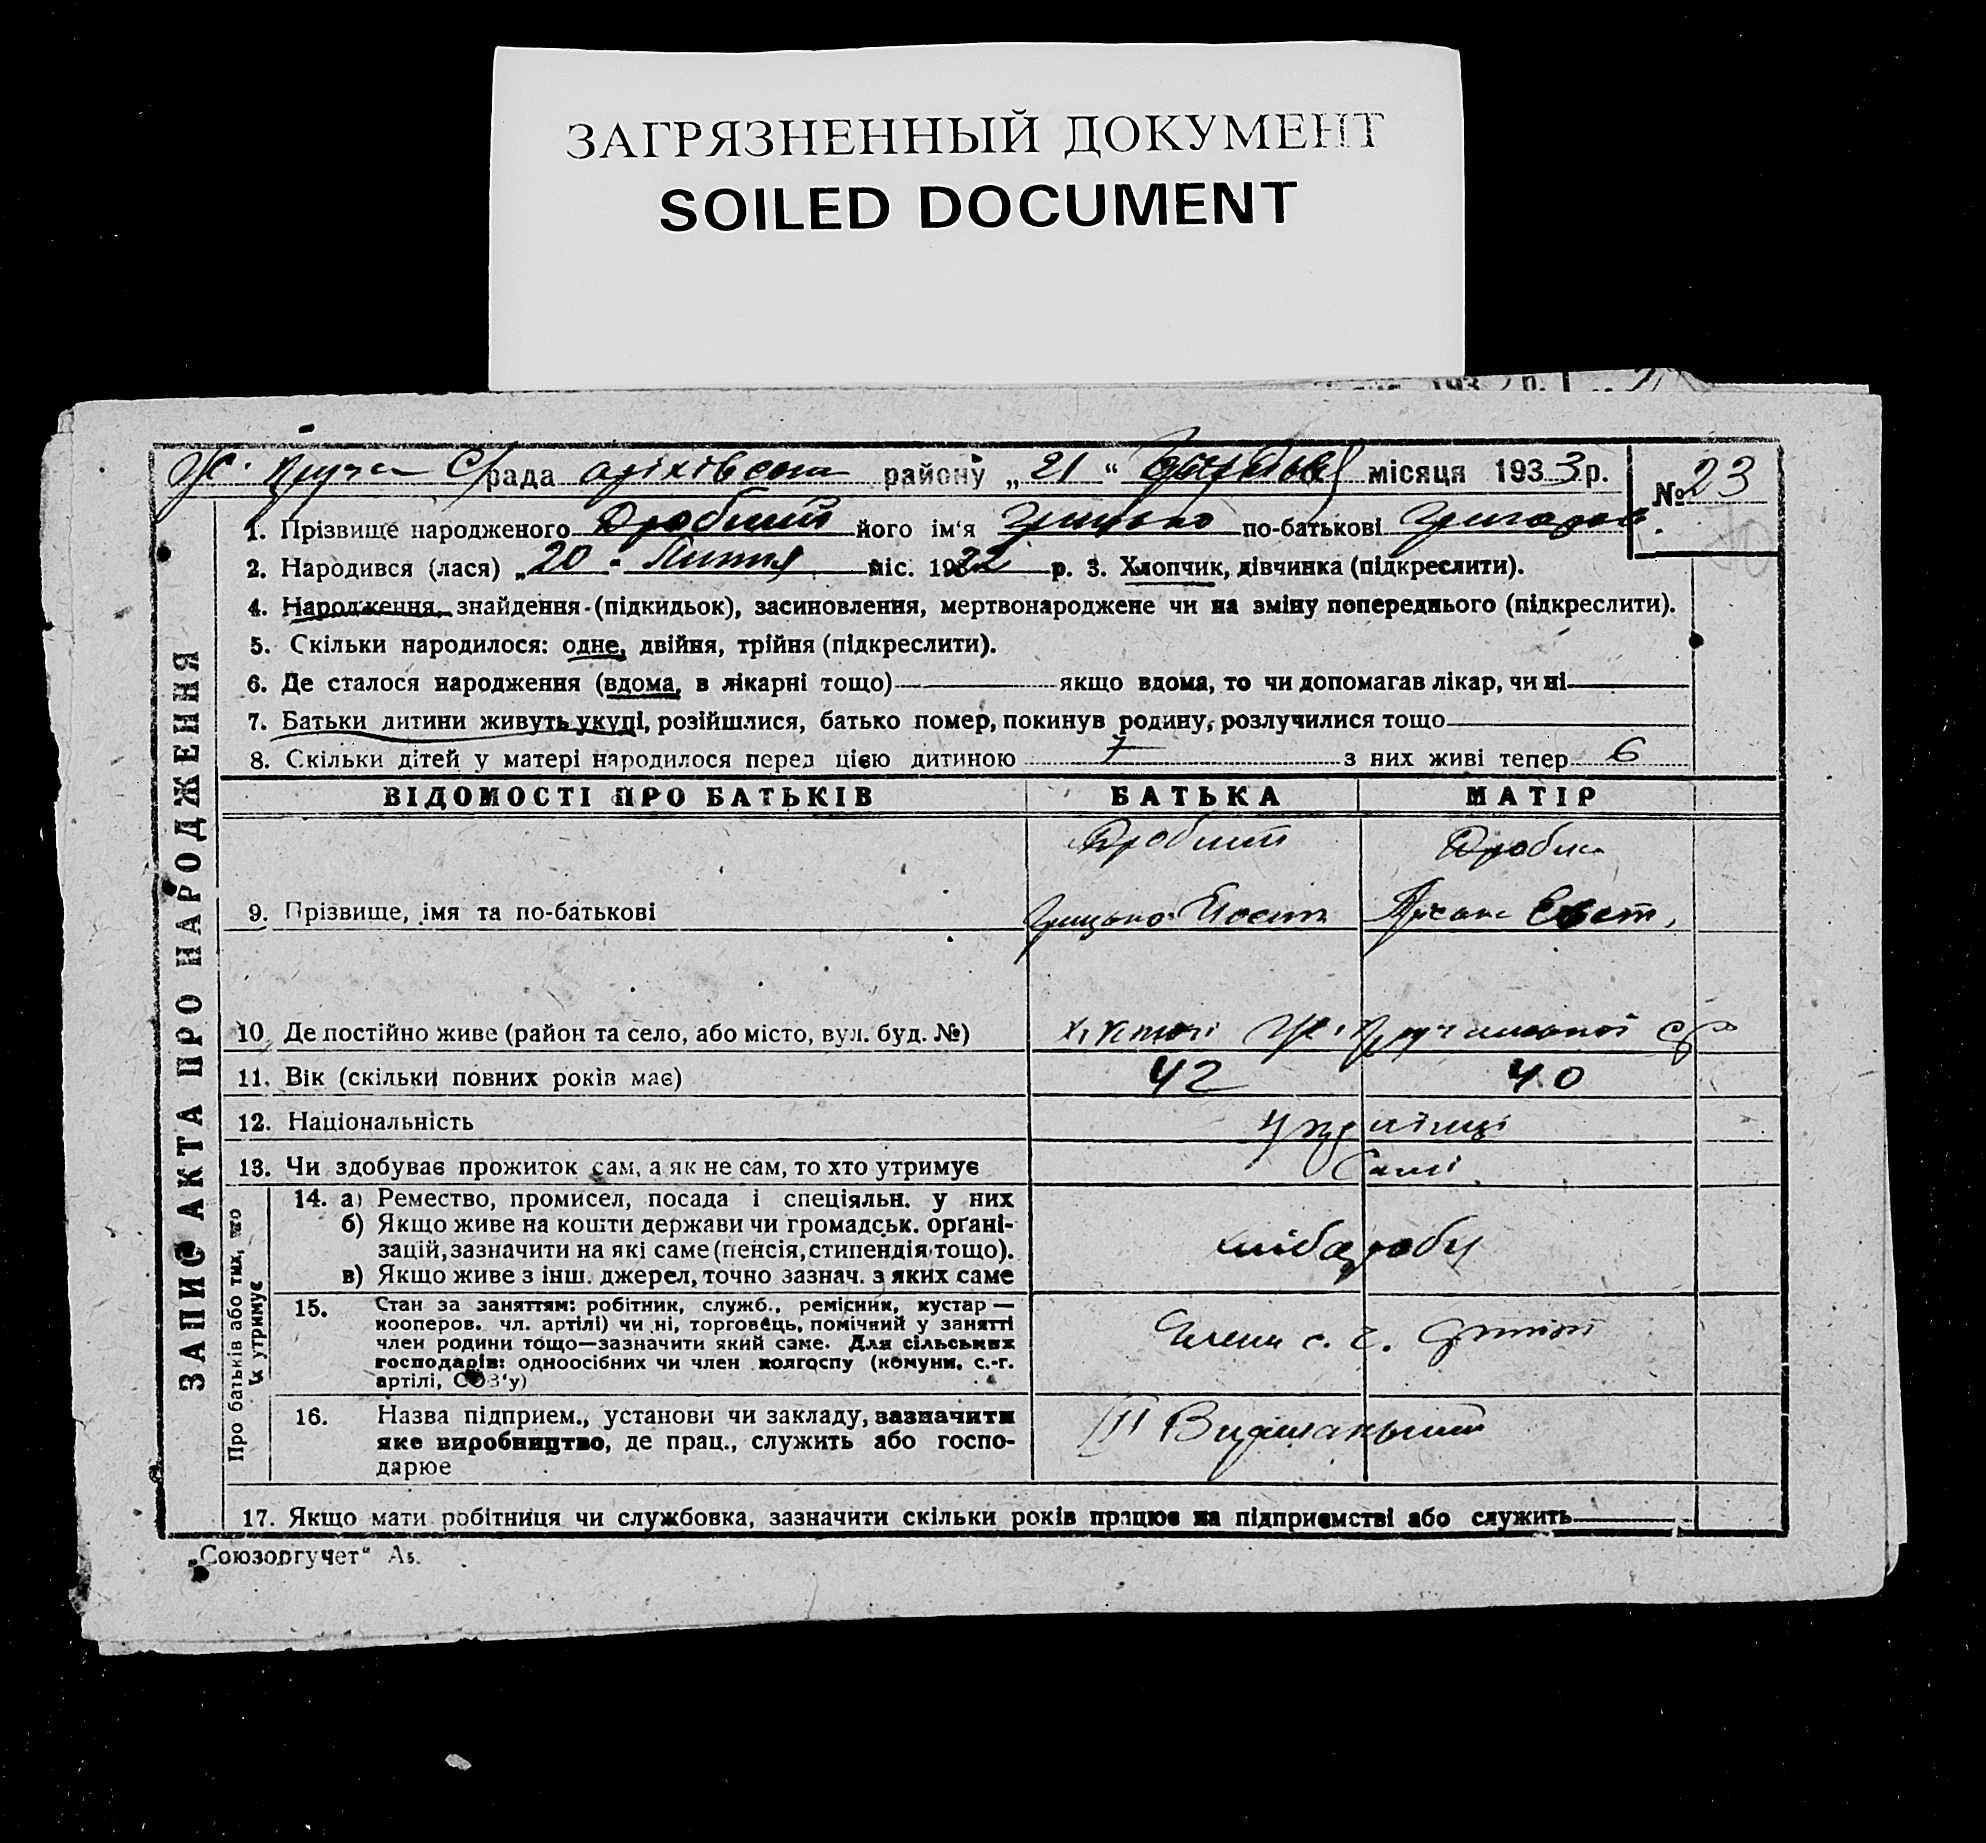 ЗАГРЯЗНЕННЫЙ ДОКУМЕНТ
SOILED DOCUMENT
рада оріхівськ району „ 21 “ місяця 1933 р. № 23
1. Прізвище народженого Дробний його ім‘я Грицько по-батькові
2. Народився (лася) „ 20 " Липня міс. 1932 р. 3. Хлопчик, дівчинка (підкреслити).
4. Народження, знайдення-(підкидьок), засиновлення, мертвонароджене чи на зміну попереднього (підкреслити).
5. Скільки народилося: одне, двійня, трійня (підкреслити).
6. Де сталося народження (вдома, в лікарні тощо) якщо вдома, то чи допомагав лікар, чи ні
7. Батьки дитини живуть укупі, розійшлися, батько помер, покинув родину, розлучилися тощо
8. Скільки дітей у матері народилося перед цією дитиною 7 з них живі тепер 6
ВІДОМОСТІ ПРО БАТЬКІВ БАТЬКА МАТІР
Дробний Дробна
9. Прізвище, імя та по-батькові Грицько
10. Де постійно живе (район та село, або місто, вул. буд. №)
11. Вік (скільки повних років має) 42 40
12. Національність українці
13. Чи здобуває прожиток сам, а як не сам, то хто утримує Самі
14. а) Ремество, промисел, посада і спеціяльн. у них
б) Якщо живе на кошти держави чи громадськ. орґані-
зацій, зазначити на які саме (пенсія, стипендія тощо).
в) Якщо живе з інш. джерел, точно зазнач. з яких саме
хліборобн
15. Стан за заняттям: робітник, служб., ремісник, кустар —
кооперов. чл. артілі) чи ні, торговець, помічний у занятті
член родини тощо—зазначити який саме. Для сільських
господарів: одноосібних чи член колгоспу (комуни, с.-г.
артілі, СОЗ‘у)
Члени с. г. артілі
16. Назва підприєм., установи чи закладу, зазначити
яке виробництво, де прац., служить або госпо-
дарює
III
17. Якщо мати робітниця чи службовка, зазначити скільки років працює на підприємстві або служить
ЗАПИС АКТА ПРО НАРОДЖЕННЯ
Про батьків або тих, хто
їх утримує
„Союзоргучет“ А5.